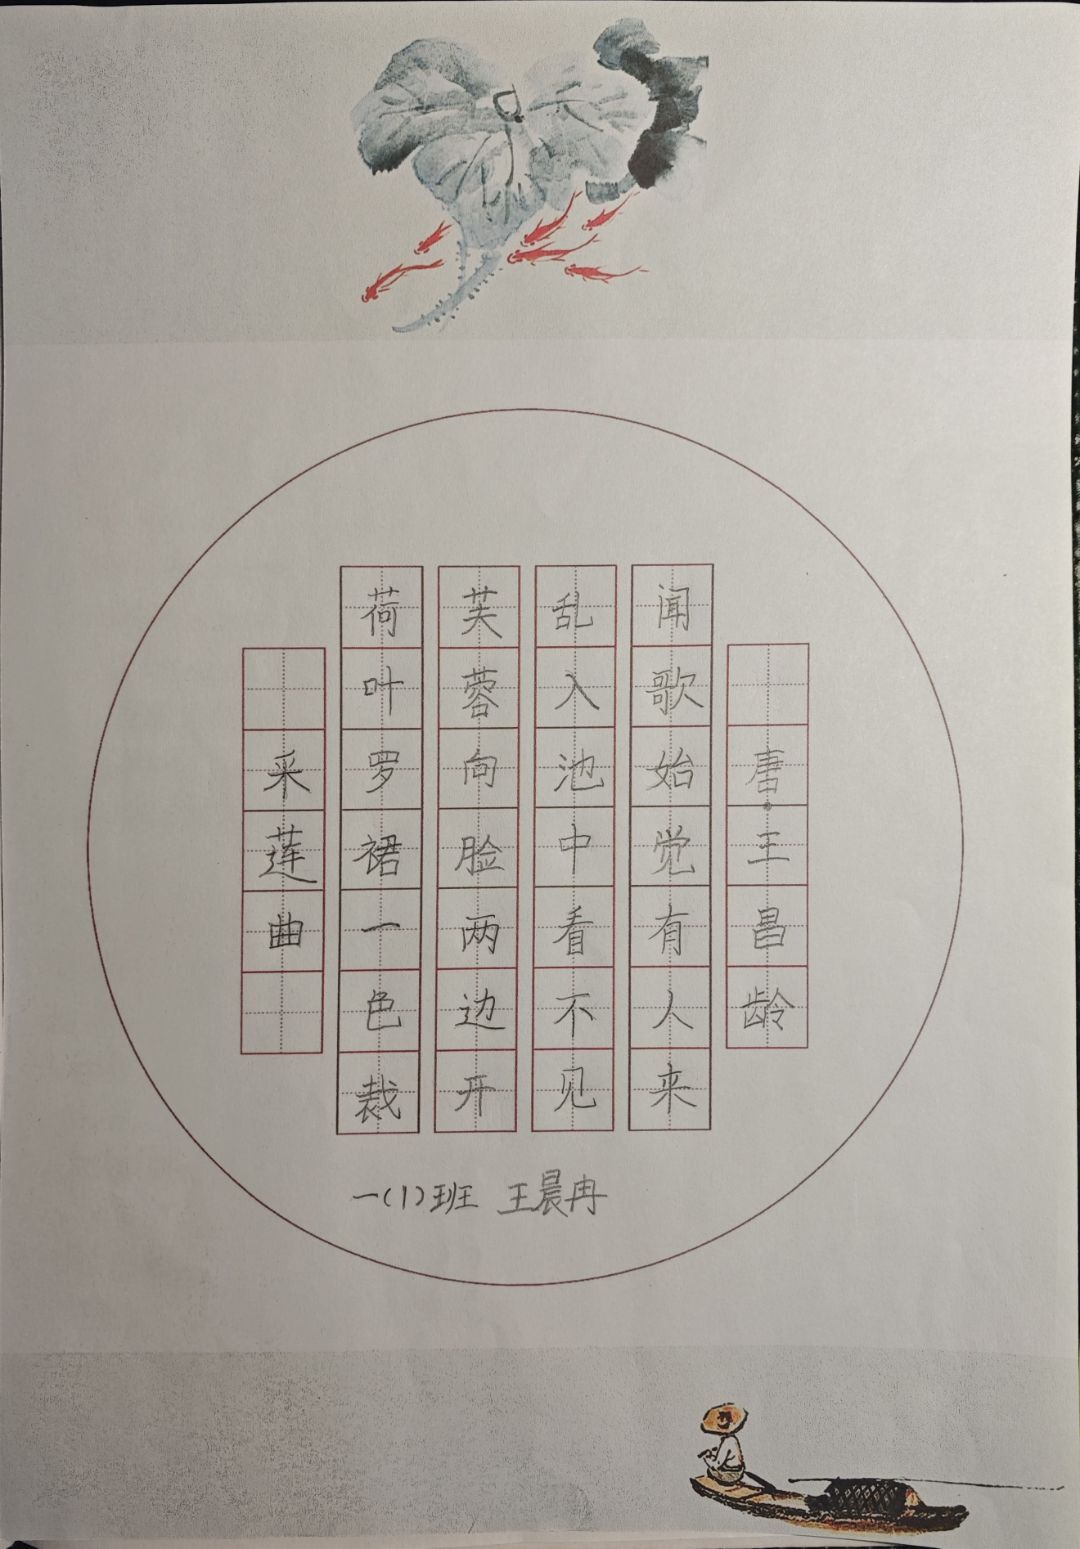 采莲曲
荷叶罗裙一色裁
芙蓉向脸两边开
乱入池中看不见
闻歌始觉有人来
唐·王昌龄
一(1)班 王晨冉